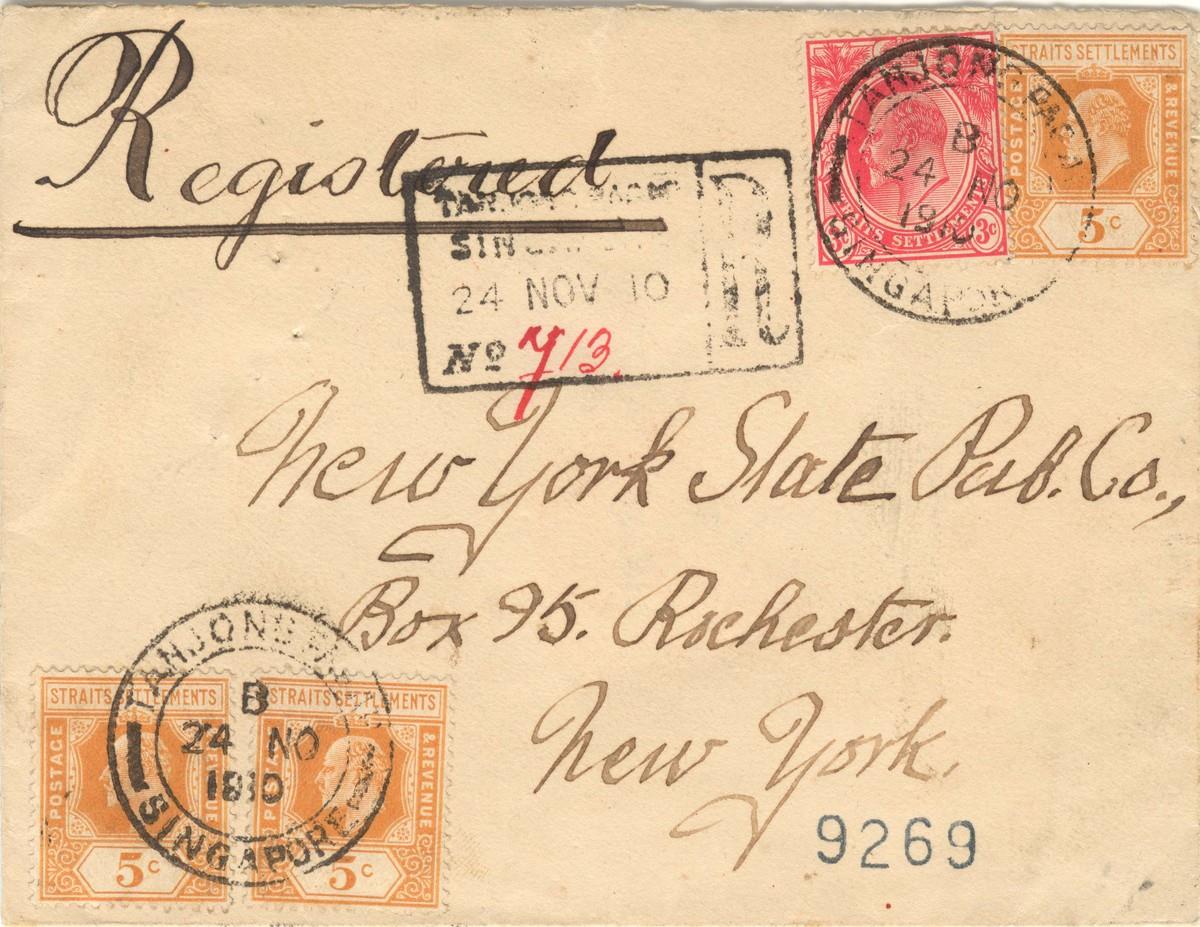 Registered
STRAITS SETTLEMENTS
3c
STRAITS SETTLEMENTS
POSTAGE
& REVENUE
5c
TANJONG PAGAR
B
24 NO
1910
SINGAPORE
TANJONG PAGAR
SINGAPORE
24 NOV 10
No 713.
R
New York State Pub. Co.,
Box 95. Rochester.
New York.
9269
STRAITS SETTLEMENTS
POSTAGE
& REVENUE
5c
STRAITS SETTLEMENTS
POSTAGE
& REVENUE
5c
TANJONG PAGAR
B
24 NO
1910
SINGAPORE